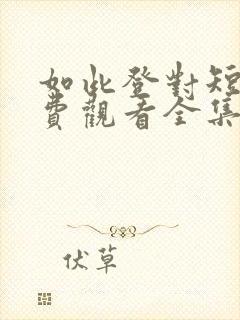 如此登對短
費觀看全集
伏草